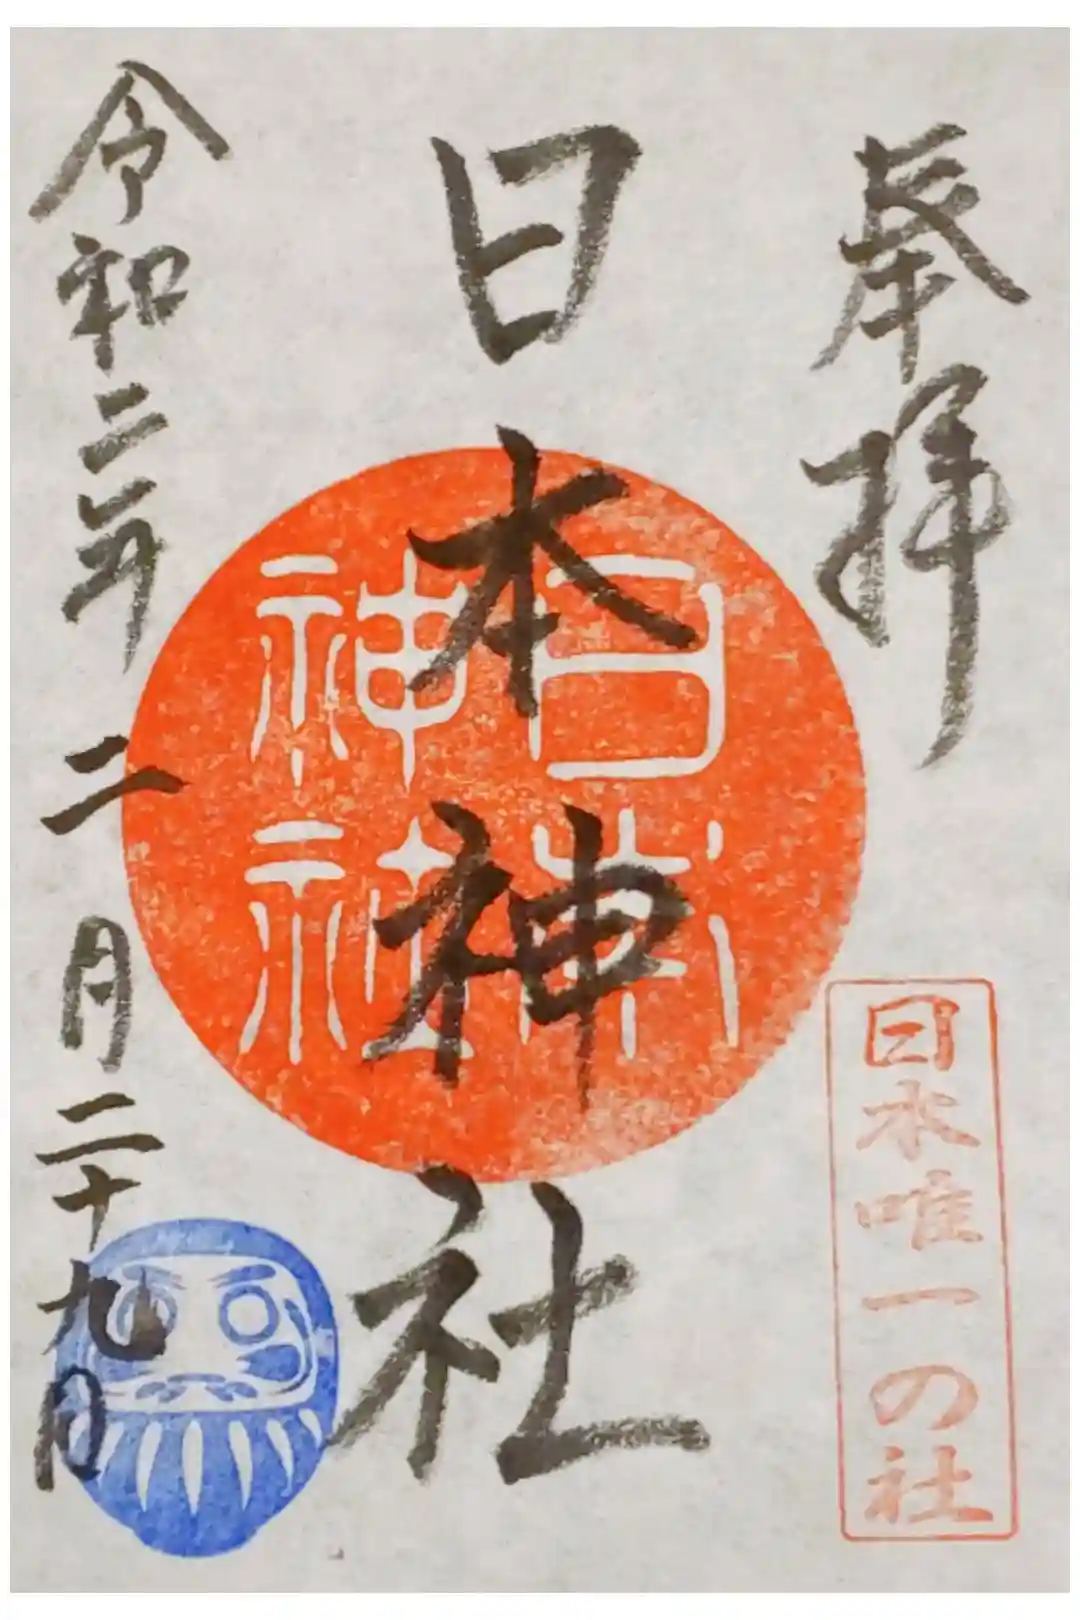 奉拝
日本唯一の社
日本神社
日本
神社
令和二年二月二十九日